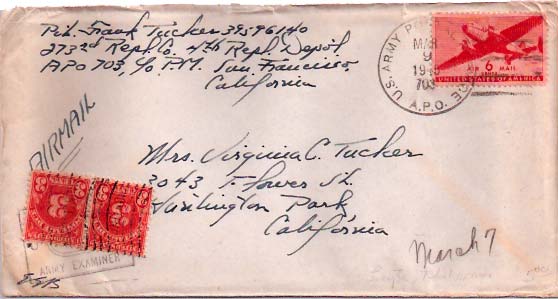 Pvt. Frank Tucker 39596140
273rd Repl. Co. 4th Repl Depot,
APO 703, c/o P.M. San Francisco,
California
U.S. ARMY
MAR
9
1945
703
A.P.O.
AIR 6 MAIL
UNITED STATES OF AMERICA
AIRMAIL
Mrs. Virginia C. Tucker
2043 Flower St.
Huntington Park
California
March 7
3 3
ARMY EXAMINER